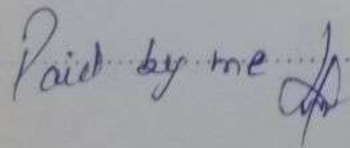 Paid by me